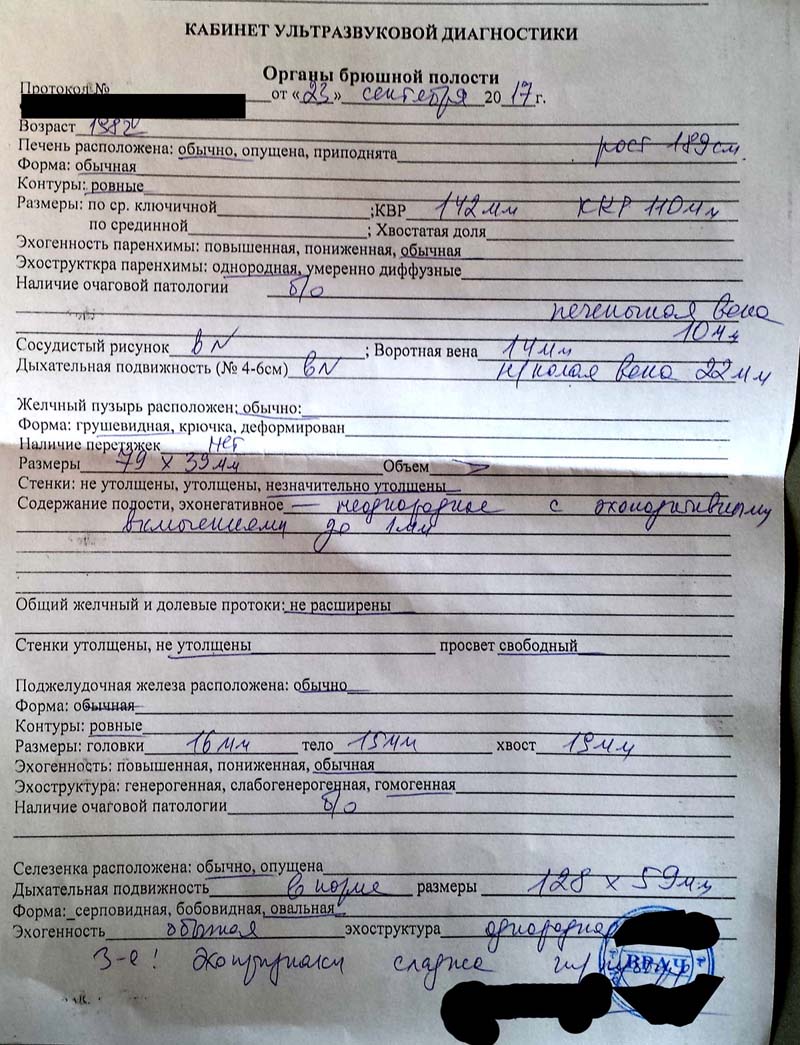 КАБИНЕТ УЛЬТРАЗВУКОВОЙ ДИАГНОСТИКИ
Органы брюшной полости
Протокол № от «23» сентября 2017 г.
Возраст 1982
Печень расположена: обычно, опущена, приподнята рост 189см.
Форма: обычная
Контуры: ровные
Размеры: по ср. ключичной ;КВР 142мм ККР 110мм
по срединной ; Хвостатая доля
Эхогенность паренхимы: повышенная, пониженная, обычная
Эхоструткра паренхимы: однородная, умеренно диффузные
Наличие очаговой патологии б/о
печеночная вена
10мм
Сосудистый рисунок в N ; Воротная вена 14мм
Дыхательная подвижность (№ 4-6см) в N н/полая вена 22мм
Желчный пузырь расположен: обычно:
Форма: грушевидная, крючка, деформирован
Наличие перетяжек нет
Размеры 79 х 39мм Объем
Стенки: не утолщены, утолщены, незначительно утолщены
Содержание полости, эхонегативное — неоднородное с эхопозитивными
включениями до 1мм
Общий желчный и долевые протоки: не расширены
Стенки утолщены, не утолщены просвет свободный
Поджелудочная железа расположена: обычно
Форма: обычная
Контуры: ровные
Размеры: головки 16мм тело 15мм хвост 19мм
Эхогенность: повышенная, пониженная, обычная
Эхоструктура: генерогенная, слабогенерогенная, гомогенная
Наличие очаговой патологии б/о
Селезенка расположена: обычно, опущена
Дыхательная подвижность в норме размеры 128 х 59мм
Форма: серповидная, бобовидная, овальная
Эхогенность обычная эхоструктура однородная
З-е! Эхопризнаки сладжа
ВРАЧ